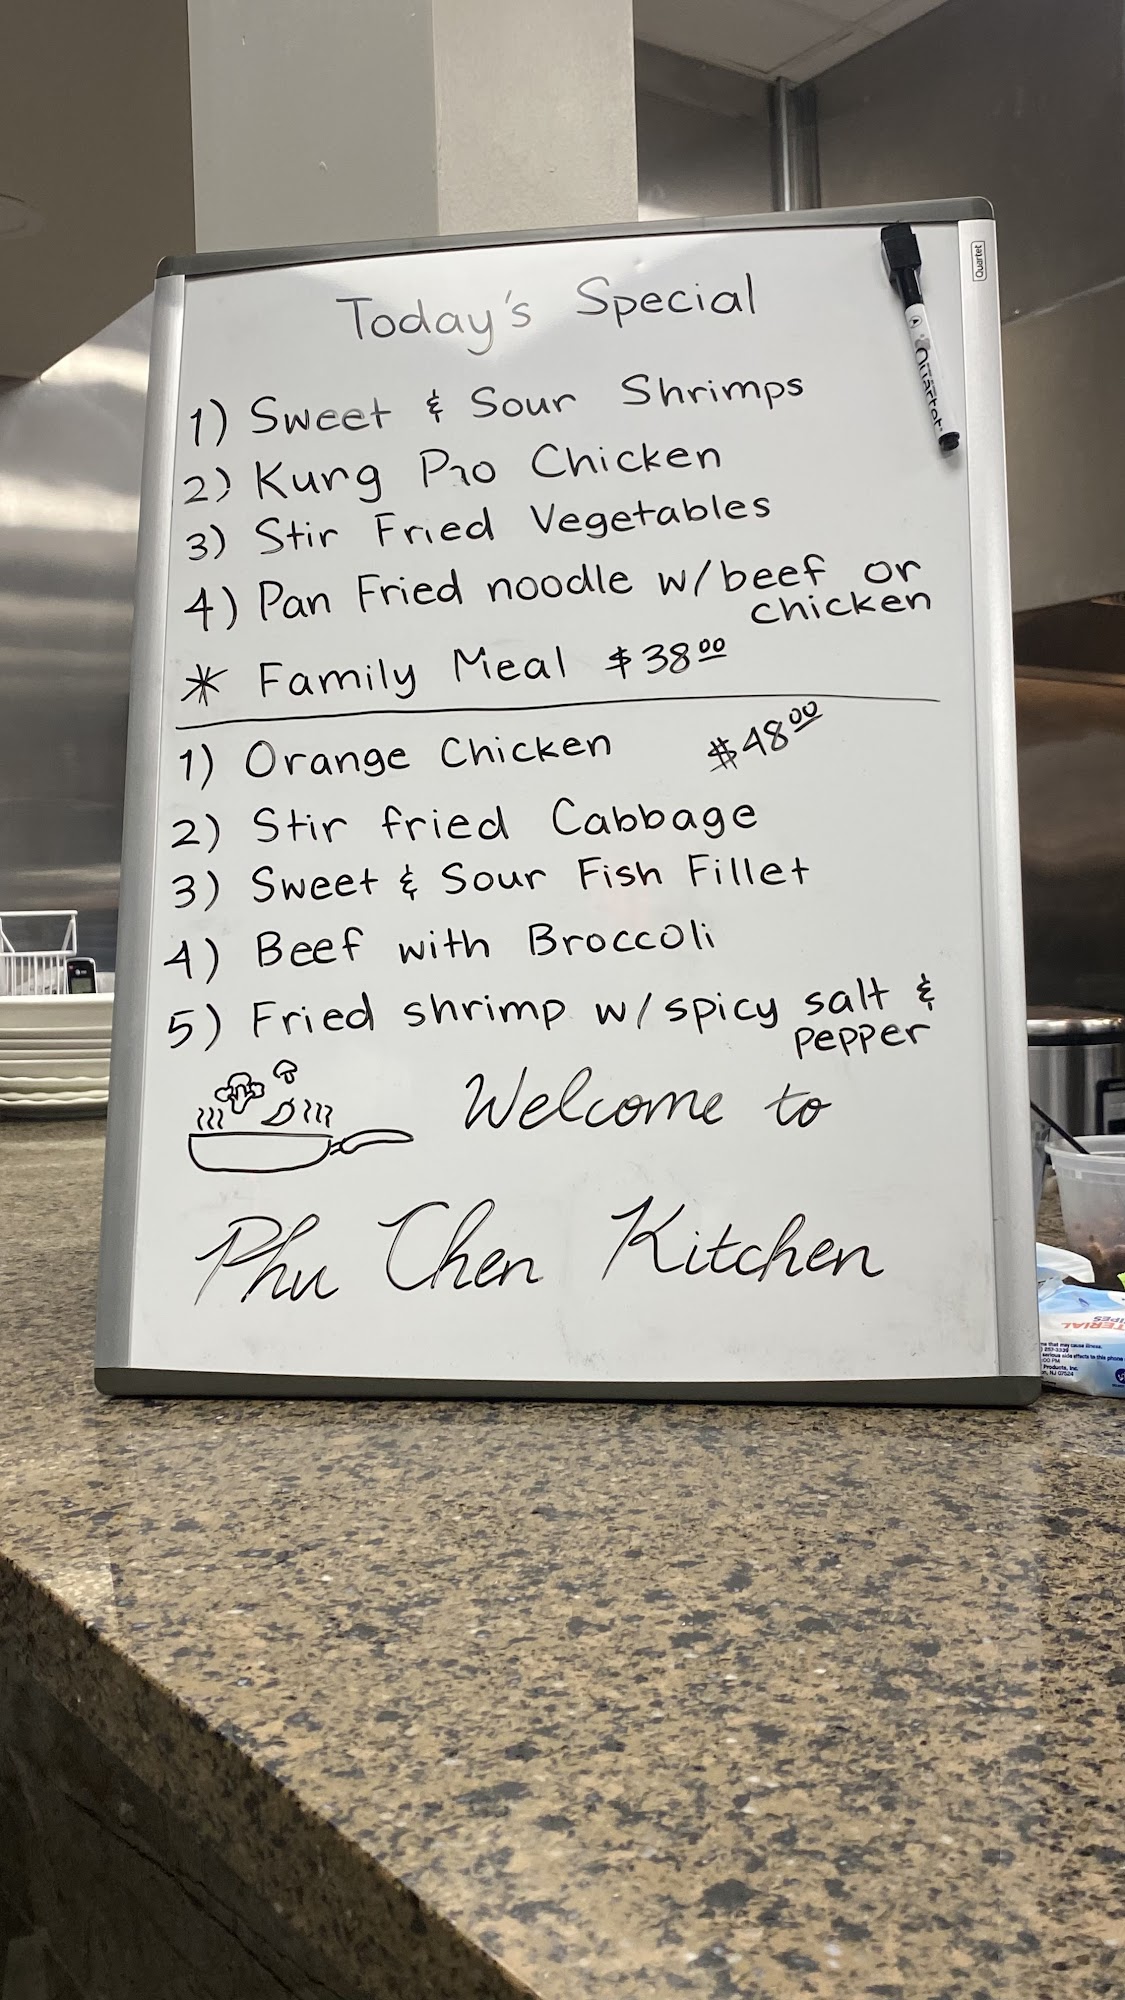 Today's Special
1) Sweet & Sour Shrimps
2) Kung Pao Chicken
3) Stir Fried Vegetables
4) Pan Fried noodle w/beef or
chicken
* Family Meal $38.00
$48.00
1) Orange Chicken
2) Stir fried Cabbage
3) Sweet & Sour Fish Fillet
4) Beef with Broccoli
5) Fried shrimp w/spicy salt &
pepper
Welcome to
Phu Chen Kitchen
Quartet
Quartet